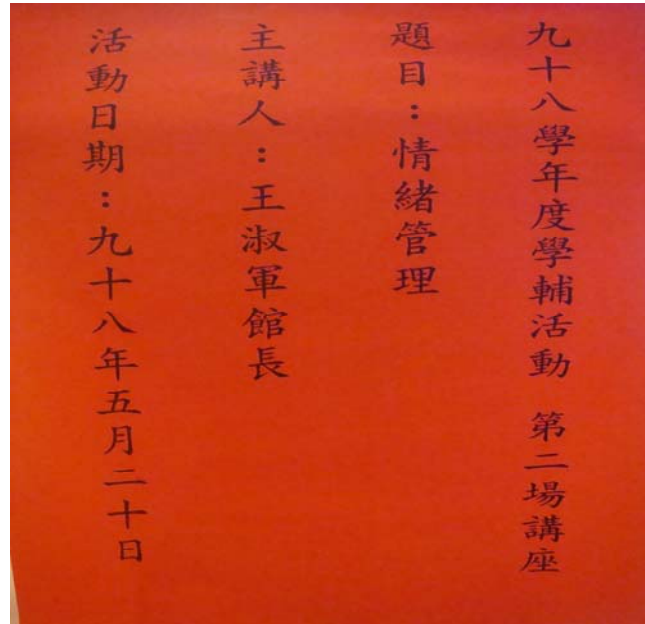 九十八學年度學輔活動 第二場講座
題目：情緒管理
主講人：王淑軍館長
活動日期：九十八年五月二十日